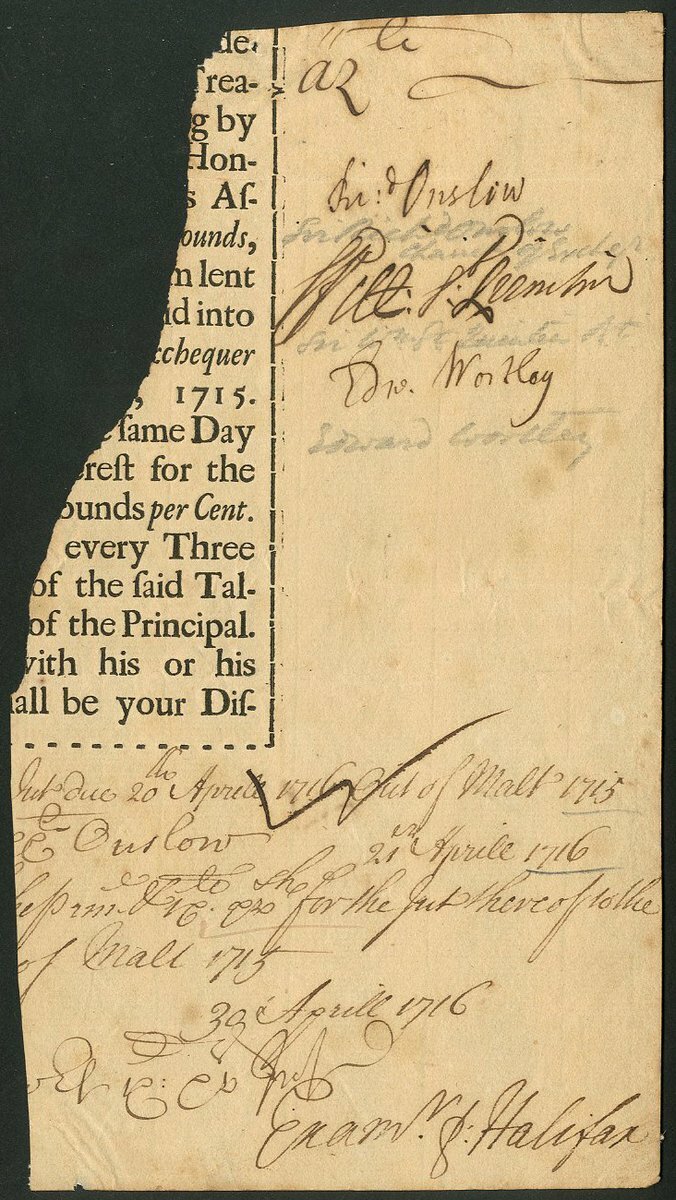 de.
Trea-
g by
Hon-
s Aſ-
ounds,
m lent
id into
xchequer
, 1715.
e ſame Day
ereſt for the
ounds per Cent.
every Three
of the ſaid Tal-
of the Principal.
with his or his
all be your Diſ-
Ri:d Onslow
Sir Richd Onslow
Chanr of Exchqr
Will: St Quintin
Sir Wm St Quintin Bt
Edw. Wortley
Edward Wortley
Int due 20th Aprill 1716 Out of Malt 1715
Onslow 21st Aprill 1716
for the Int thereof to the
of Malt 1715
Aprill 1716
Examr p: Halifax